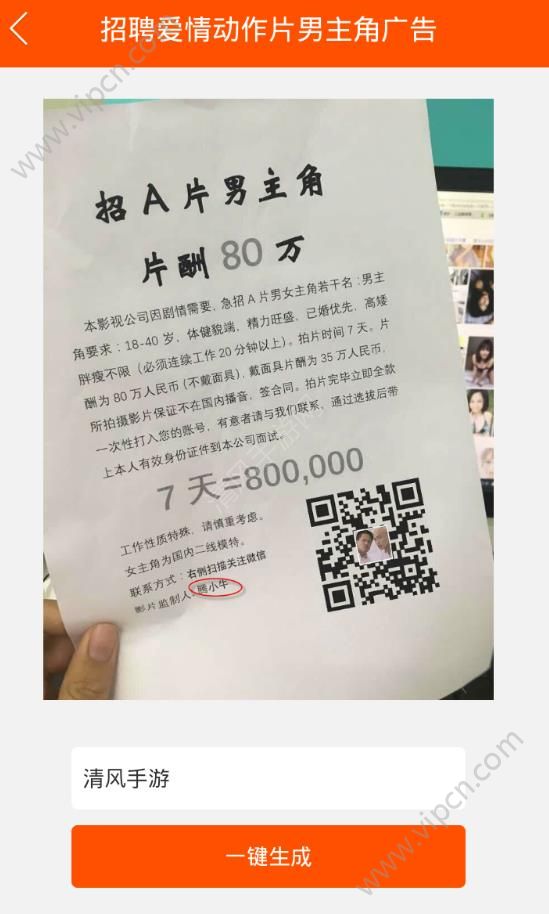 招聘爱情动作片男主角广告
www.vipcn.com
招 A 片男主角
片酬 80 万
本影视公司因剧情需要, 急招 A 片男女主角若干名 : 男主
角要求 : 18-40 岁, 体健貌端, 精力旺盛, 已婚优先, 高矮
胖瘦不限 (必须连续工作 20 分钟以上)。拍片时间 7 天。片
酬为 80 万人民币 (不戴面具), 戴面具片酬为 35 万人民币,
所拍摄影片保证不在国内播音, 签合同。拍片完毕立即全款
一次性打入您的账号, 有意者请与我们联系, 通过选拔后带
上本人有效身份证件到本公司面试。
清风手游网
7 天=800,000
工作性质特殊, 请慎重考虑。
女主角为国内二线模特。
联系方式 : 右侧扫描关注微信
影片监制人: 腾小牛
清风手游
一键生成
www.vipcn.com